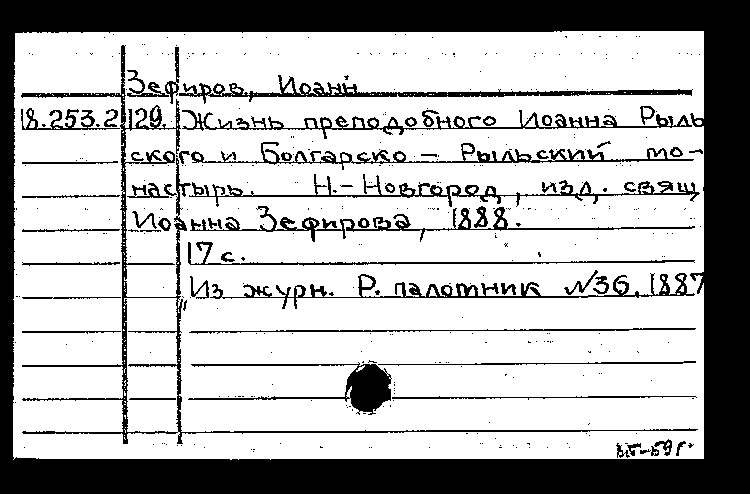 Зефиров, Иоанн
18.253.2.129. Жизнь преподобного Иоанна Рыль
ского и Болгарско – Рыльский мо-
настырь. Н.-Новгород, изд. свящ.
Иоанна Зефирова, 1888.
17 с.
Из журн. Р. палотник №36, 1887